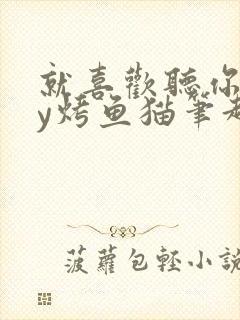 就喜歡聽你
y烤鱼猫筆趣
菠蘿包輕小說